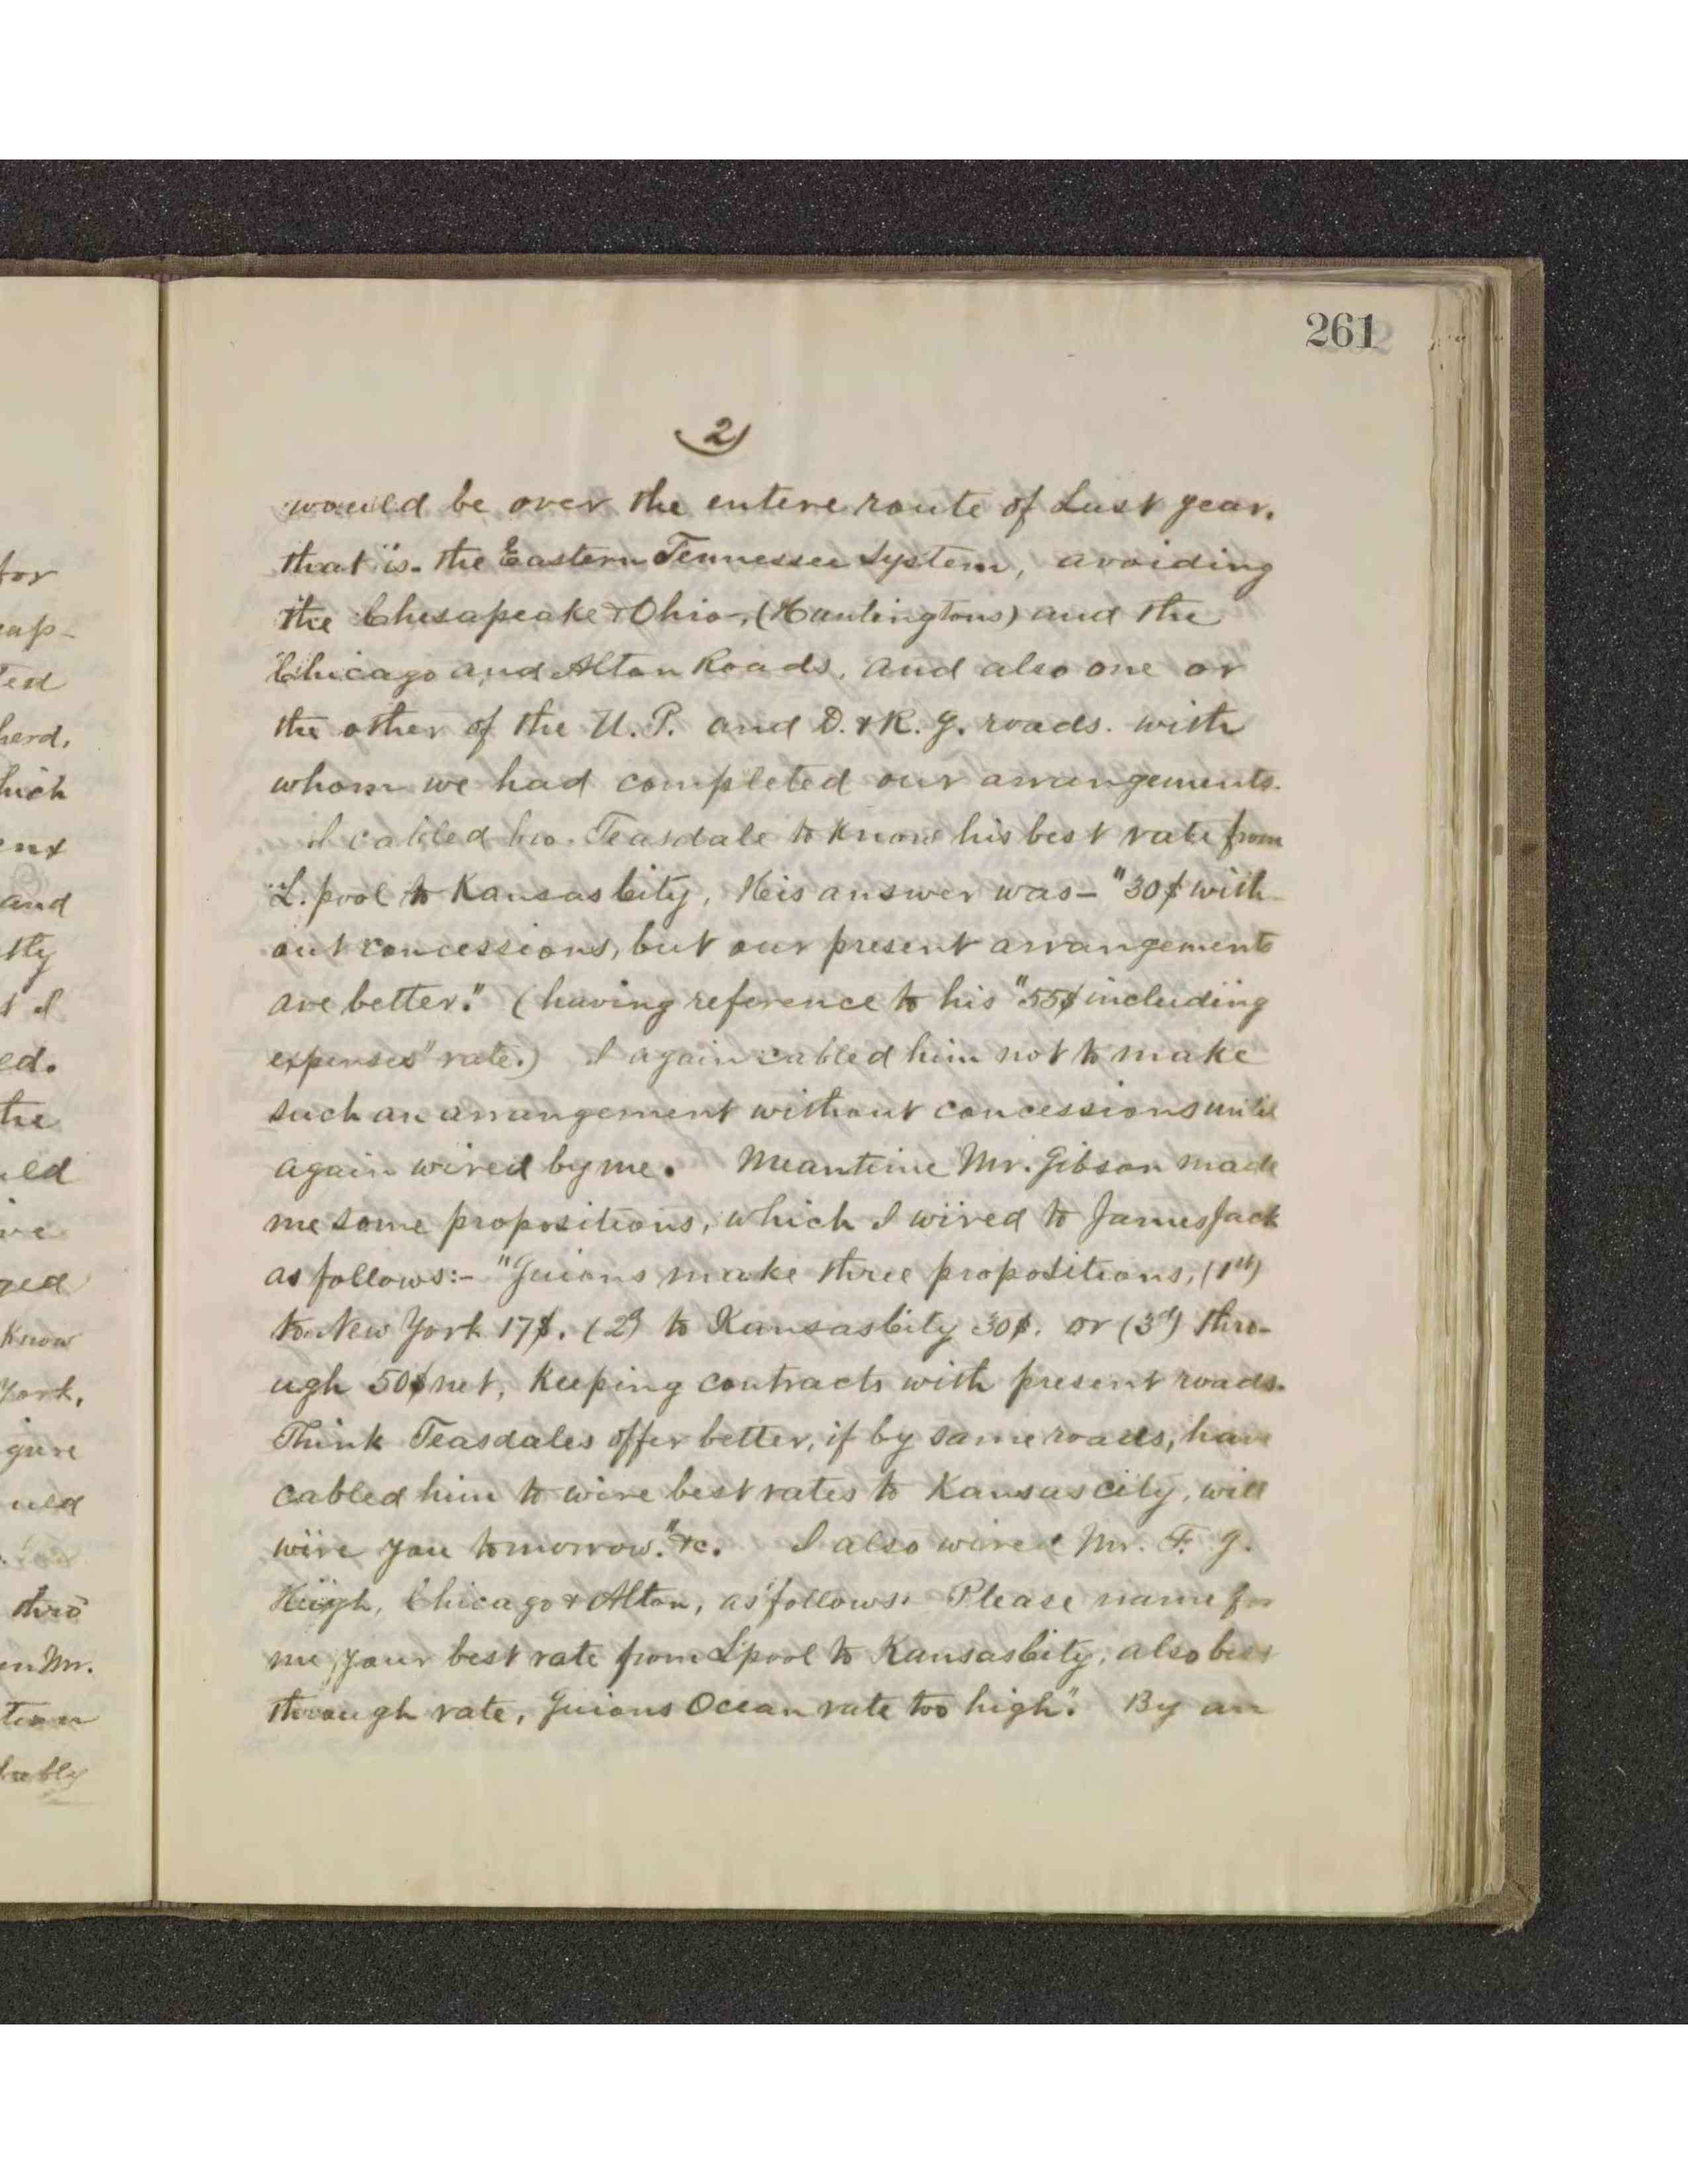 261
2)
would be over the entire route of Last year.
that is. the Eastern Tennessee System, avoiding
the Chesapeake & Ohio, (Huntingtons) and the
Chicago and Alton Roads, and also one or
the other of the U. P. and D. & R. G. roads. with
whom we had completed our arrangements.
I cabled bro. Teasdale to know his best rate from
L.pool to Kansas City, His answer was— "30$ with-
out concessions, but our present arrangements
are better." (having reference to his "55$ including
expenses" rate.) I again cabled him not to make
such an arrangement without concessions until
again wired by me. Meantime Mr. Gibson made
me some propositions, which I wired to James Jack
as follows:- "Guions make three propositions, (1st)
to New York 17$. (2d) to Kansas City 30$. or (3d) thro-
ugh 50$ net, Keeping contracts with present roads.
Think Teasdales offer better, if by same roads, have
cabled him to wire best rates to Kansas city, will
wire you tomorrow." &c. I also wired Mr. F. G.
High, Chicago & Alton, as follows: Please name for
me, your best rate from Lpool to Kansas City, also best
through rate, Guions Ocean rate too high." By an
for
cap-
ted
herd,
hich
ent
and
stly
t I
ed.
the
uld
ive
ged
Know
York,
gure
uld
thro
en Mr.
tion
bably